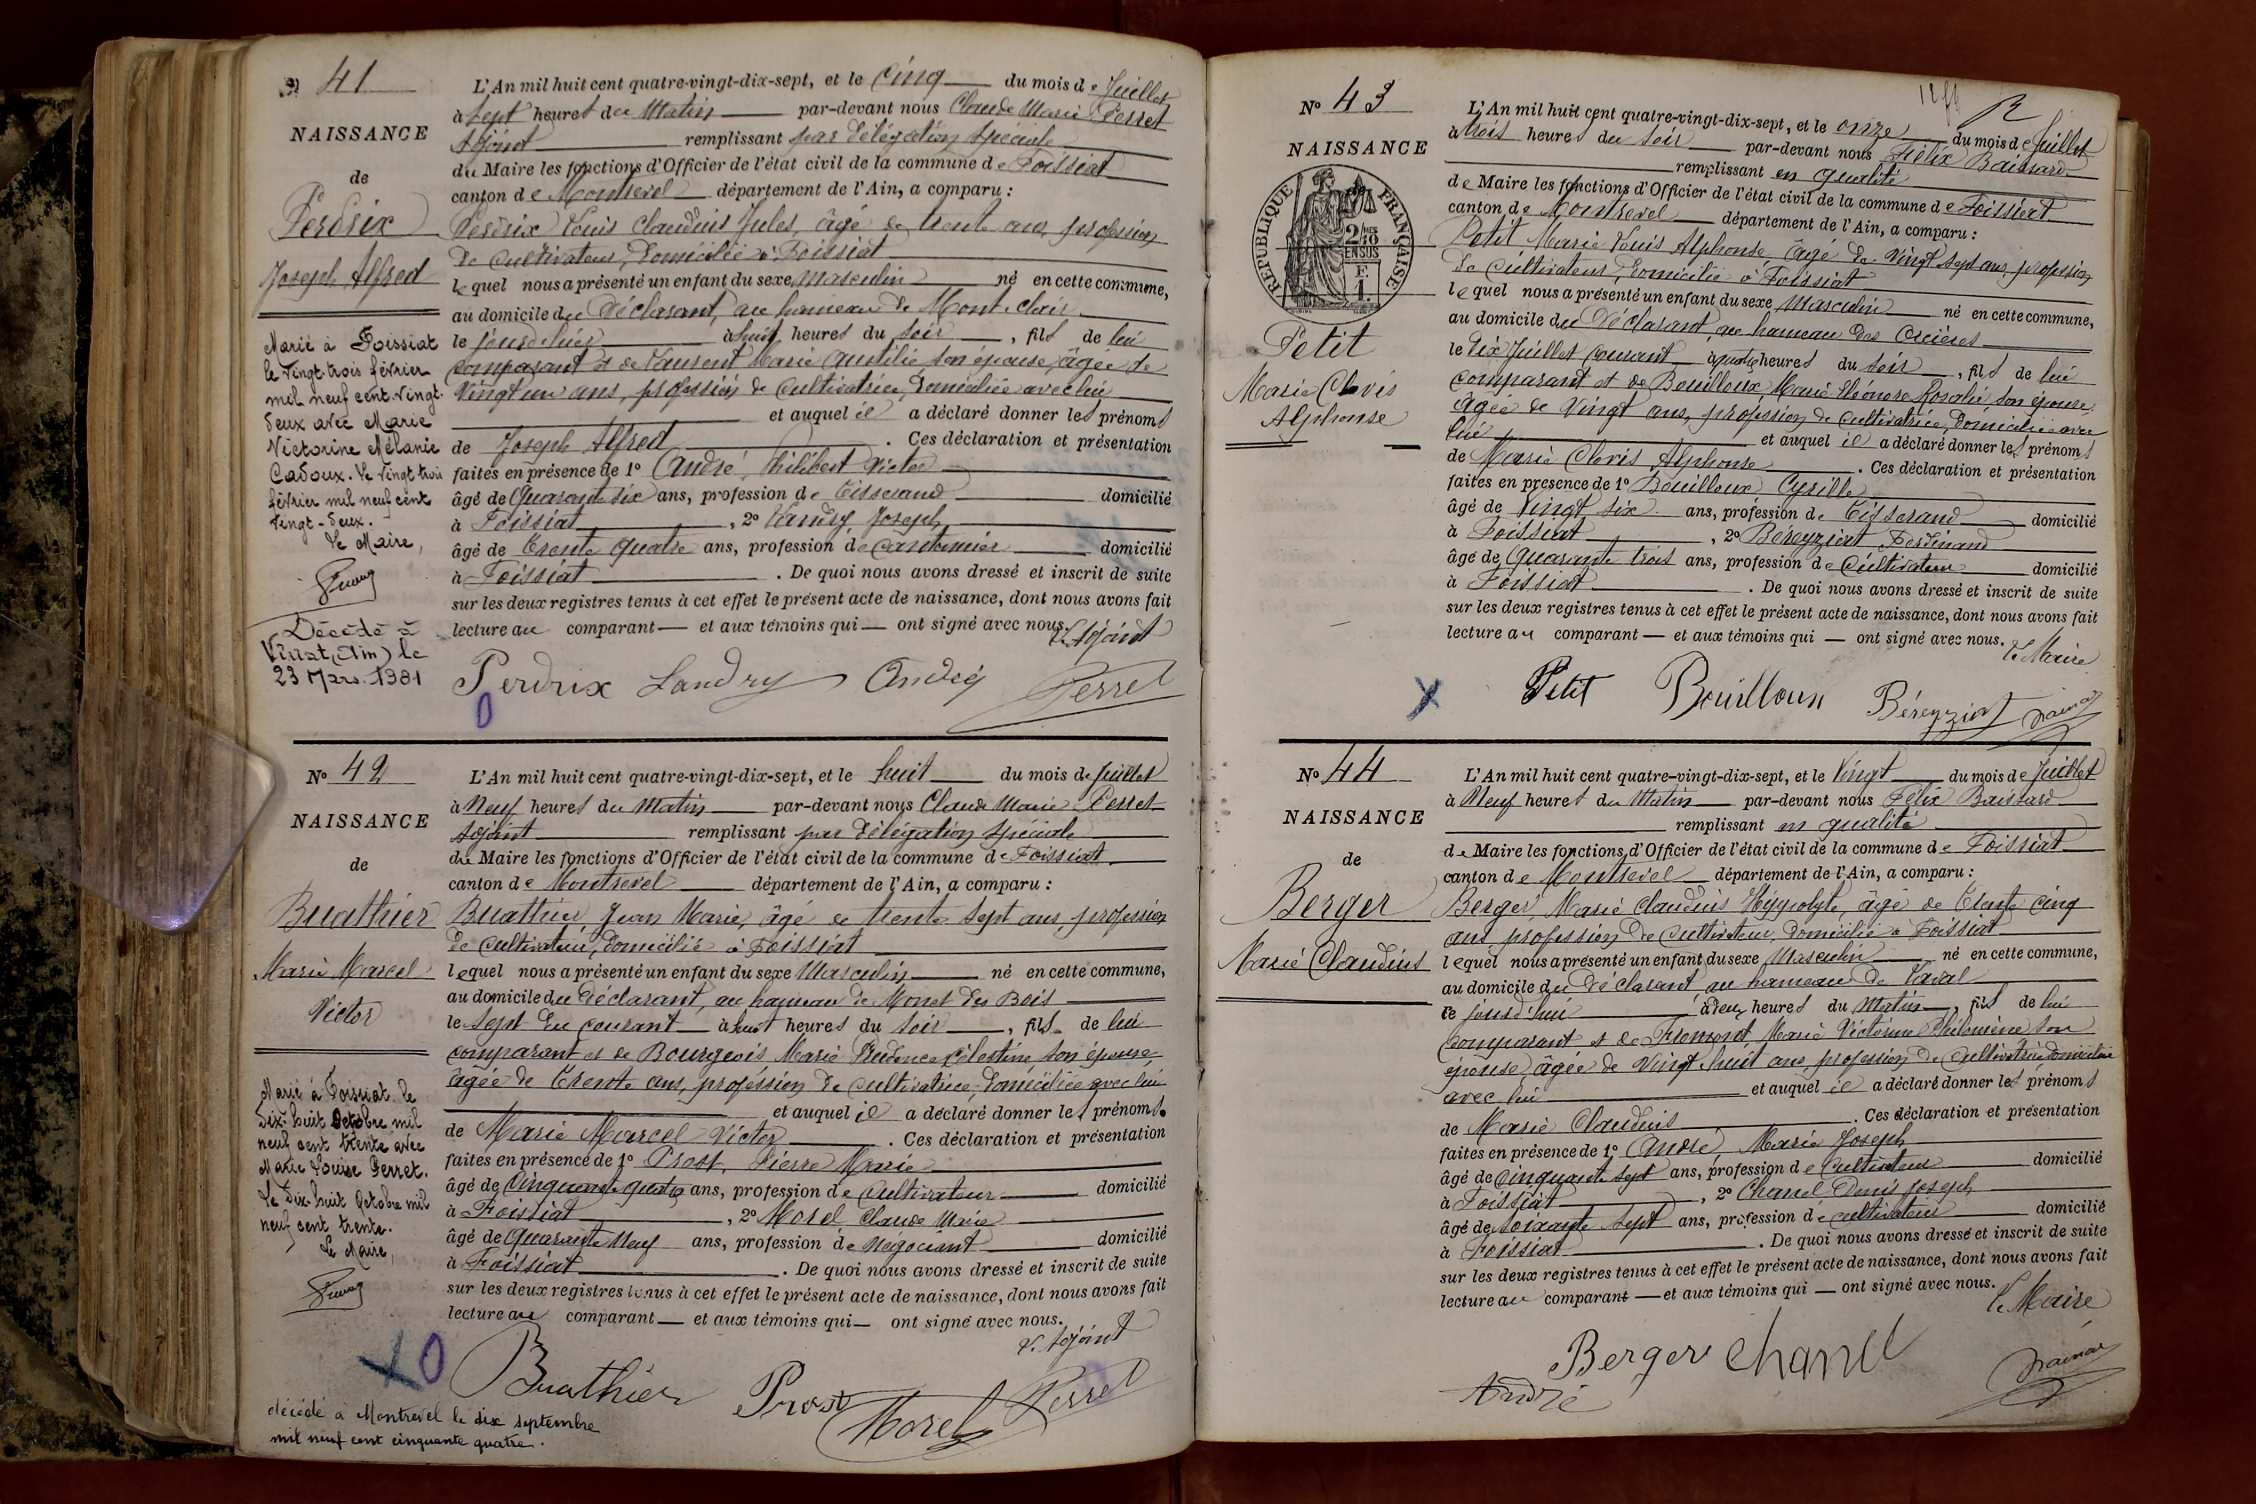 41
NAISSANCE
de
Perdrix
Joseph Alfred
Marié à Foissiat
le vingt-trois février
mil neuf cent vingt-
deux avec Marie
Victorine Mélanie
Cadoux. Le vingt trois
février mil neuf cent
vingt-deux.
Le Maire,
Décédé à
Viriat (Ain) le
23 Mars 1981
L'An mil huit cent quatre-vingt-dix-sept, et le cinq du mois de Juillet
à sept heures du Matin par-devant nous Claude Marie Perret
Adjoint remplissant par délégation spéciale
du Maire les fonctions d'Officier de l'état civil de la commune de Foissiat
canton de Montrevel département de l'Ain, a comparu :
Perdrix Louis Claudius Jules, âgé de trente ans, profession
de cultivateur, domicilié à Foissiat
lequel nous a présenté un enfant du sexe masculin né en cette commune,
au domicile du Déclarant, au hameau de Mont-clair
le jour d'hier à huit heures du soir, fils de lui
comparant et de Laurent Marie Aurélie, son épouse, âgée de
vingt un ans, profession de cultivatrice, domiciliée avec lui
et auquel il a déclaré donner les prénoms
de Joseph Alfred. Ces déclaration et présentation
faites en présence de 1° André, Philibert Victor
âgé de Quarante six ans, profession de Tisserand domicilié
à Foissiat, 2° Landry Joseph
âgé de Trente quatre ans, profession de cantonnier domicilié
à Foissiat. De quoi nous avons dressé et inscrit de suite
sur les deux registres tenus à cet effet le présent acte de naissance, dont nous avons fait
lecture au comparant et aux témoins qui ont signé avec nous.
L'Adjoint
Perdrix Landry André Perret
N° 42
NAISSANCE
de
Buathier
Marie Marcel
Victor
Marié à Foissiat le
dix-huit Octobre mil
neuf cent trente avec
Marie Louise Perret.
Le dix-huit Octobre mil
neuf cent trente.
Le Maire,
décédé à Montrevel le dix septembre
mil neuf cent cinquante quatre.
L'An mil huit cent quatre-vingt-dix-sept, et le huit du mois de Juillet
à Neuf heures du Matin par-devant nous Claude Marie Perret
Adjoint remplissant par délégation spéciale
du Maire les fonctions d'Officier de l'état civil de la commune de Foissiat
canton de Montrevel département de l'Ain, a comparu :
Buathier Jean Marie, âgé de trente sept ans, profession
de cultivateur, domicilié à Foissiat
lequel nous a présenté un enfant du sexe Masculin né en cette commune,
au domicile du Déclarant, au hameau de Monet des Bois
le sept du courant à huit heures du soir, fils de lui
comparant et de Bourgeois Marie Prudence Célestine son épouse
âgée de Trente ans, profession de cultivatrice, domiciliée avec lui
et auquel il a déclaré donner les prénoms
de Marie Marcel Victor. Ces déclaration et présentation
faites en présence de 1° Prost, Pierre Marie
âgé de Cinquante quatre ans, profession de Cultivateur domicilié
à Foissiat, 2° Morel Claude Marie
âgé de Quarante Neuf ans, profession de Négociant domicilié
à Foissiat. De quoi nous avons dressé et inscrit de suite
sur les deux registres tenus à cet effet le présent acte de naissance, dont nous avons fait
lecture au comparant et aux témoins qui ont signé avec nous.
L'Adjoint
Buathier Prost Morel Perret
N° 43
NAISSANCE
RÉPUBLIQUE FRANÇAISE
2/10
EN SUS
F.
1.
Petit
Marie Clovis
Alphonse
L'An mil huit cent quatre-vingt-dix-sept, et le onze du mois de Juillet
à trois heures du soir par-devant nous Félix Baissard
remplissant en qualité
de Maire les fonctions d'Officier de l'état civil de la commune de Foissiat
canton de Montrevel département de l'Ain, a comparu :
Petit Marie Louis Alphonse, âgé de vingt sept ans, profession
de cultivateur, domicilié à Foissiat
lequel nous a présenté un enfant du sexe Masculin né en cette commune,
au domicile du Déclarant, au hameau des
le dix Juillet courant à quatre heures du soir, fils de lui
comparant et de Bouilloux, Marie Eléonore Rosalie son épouse
âgée de Vingt ans, profession de cultivatrice, domiciliée avec
lui et auquel il a déclaré donner les prénoms
de Marie Clovis Alphonse. Ces déclaration et présentation
faites en présence de 1° Bouilloux Cyrille
âgé de Vingt six ans, profession de Tisserand domicilié
à Foissiat, 2° Béréyziat Ferdinand
âgé de Quarante trois ans, profession de Cultivateur domicilié
à Foissiat. De quoi nous avons dressé et inscrit de suite
sur les deux registres tenus à cet effet le présent acte de naissance, dont nous avons fait
lecture au comparant et aux témoins qui ont signé avec nous.
Le Maire
Petit Bouilloux Béreyziat
N° 44
NAISSANCE
de
Berger
Marie Claudius
L'An mil huit cent quatre-vingt-dix-sept, et le Vingt du mois de Juillet
à Neuf heures du Matin par-devant nous Félix Baissard
remplissant en qualité
de Maire les fonctions d'Officier de l'état civil de la commune de Foissiat
canton de Montrevel département de l'Ain, a comparu :
Berger, Marie Claudius Hyppolyte, âgé de Trente cinq
ans profession de cultivateur, domicilié à Foissiat
lequel nous a présenté un enfant du sexe Masculin né en cette commune,
au domicile du Déclarant au hameau de Laval
ce jourd'hui à deux heures du Matin, fils de lui
comparant et de Fromont, Marie Victorine Philomène son
épouse, âgée de Vingt huit ans, profession de cultivatrice domiciliée
avec lui et auquel il a déclaré donner les prénoms
de Marie Claudius. Ces déclaration et présentation
faites en présence de 1° André, Marie Joseph
âgé de cinquante sept ans, profession de Cultivateur domicilié
à Foissiat, 2° Chanel Denis Joseph
âgé de soixante sept ans, profession de cultivateur domicilié
à Foissiat. De quoi nous avons dressé et inscrit de suite
sur les deux registres tenus à cet effet le présent acte de naissance, dont nous avons fait
lecture au comparant et aux témoins qui ont signé avec nous.
Le Maire
Berger Chanel
André